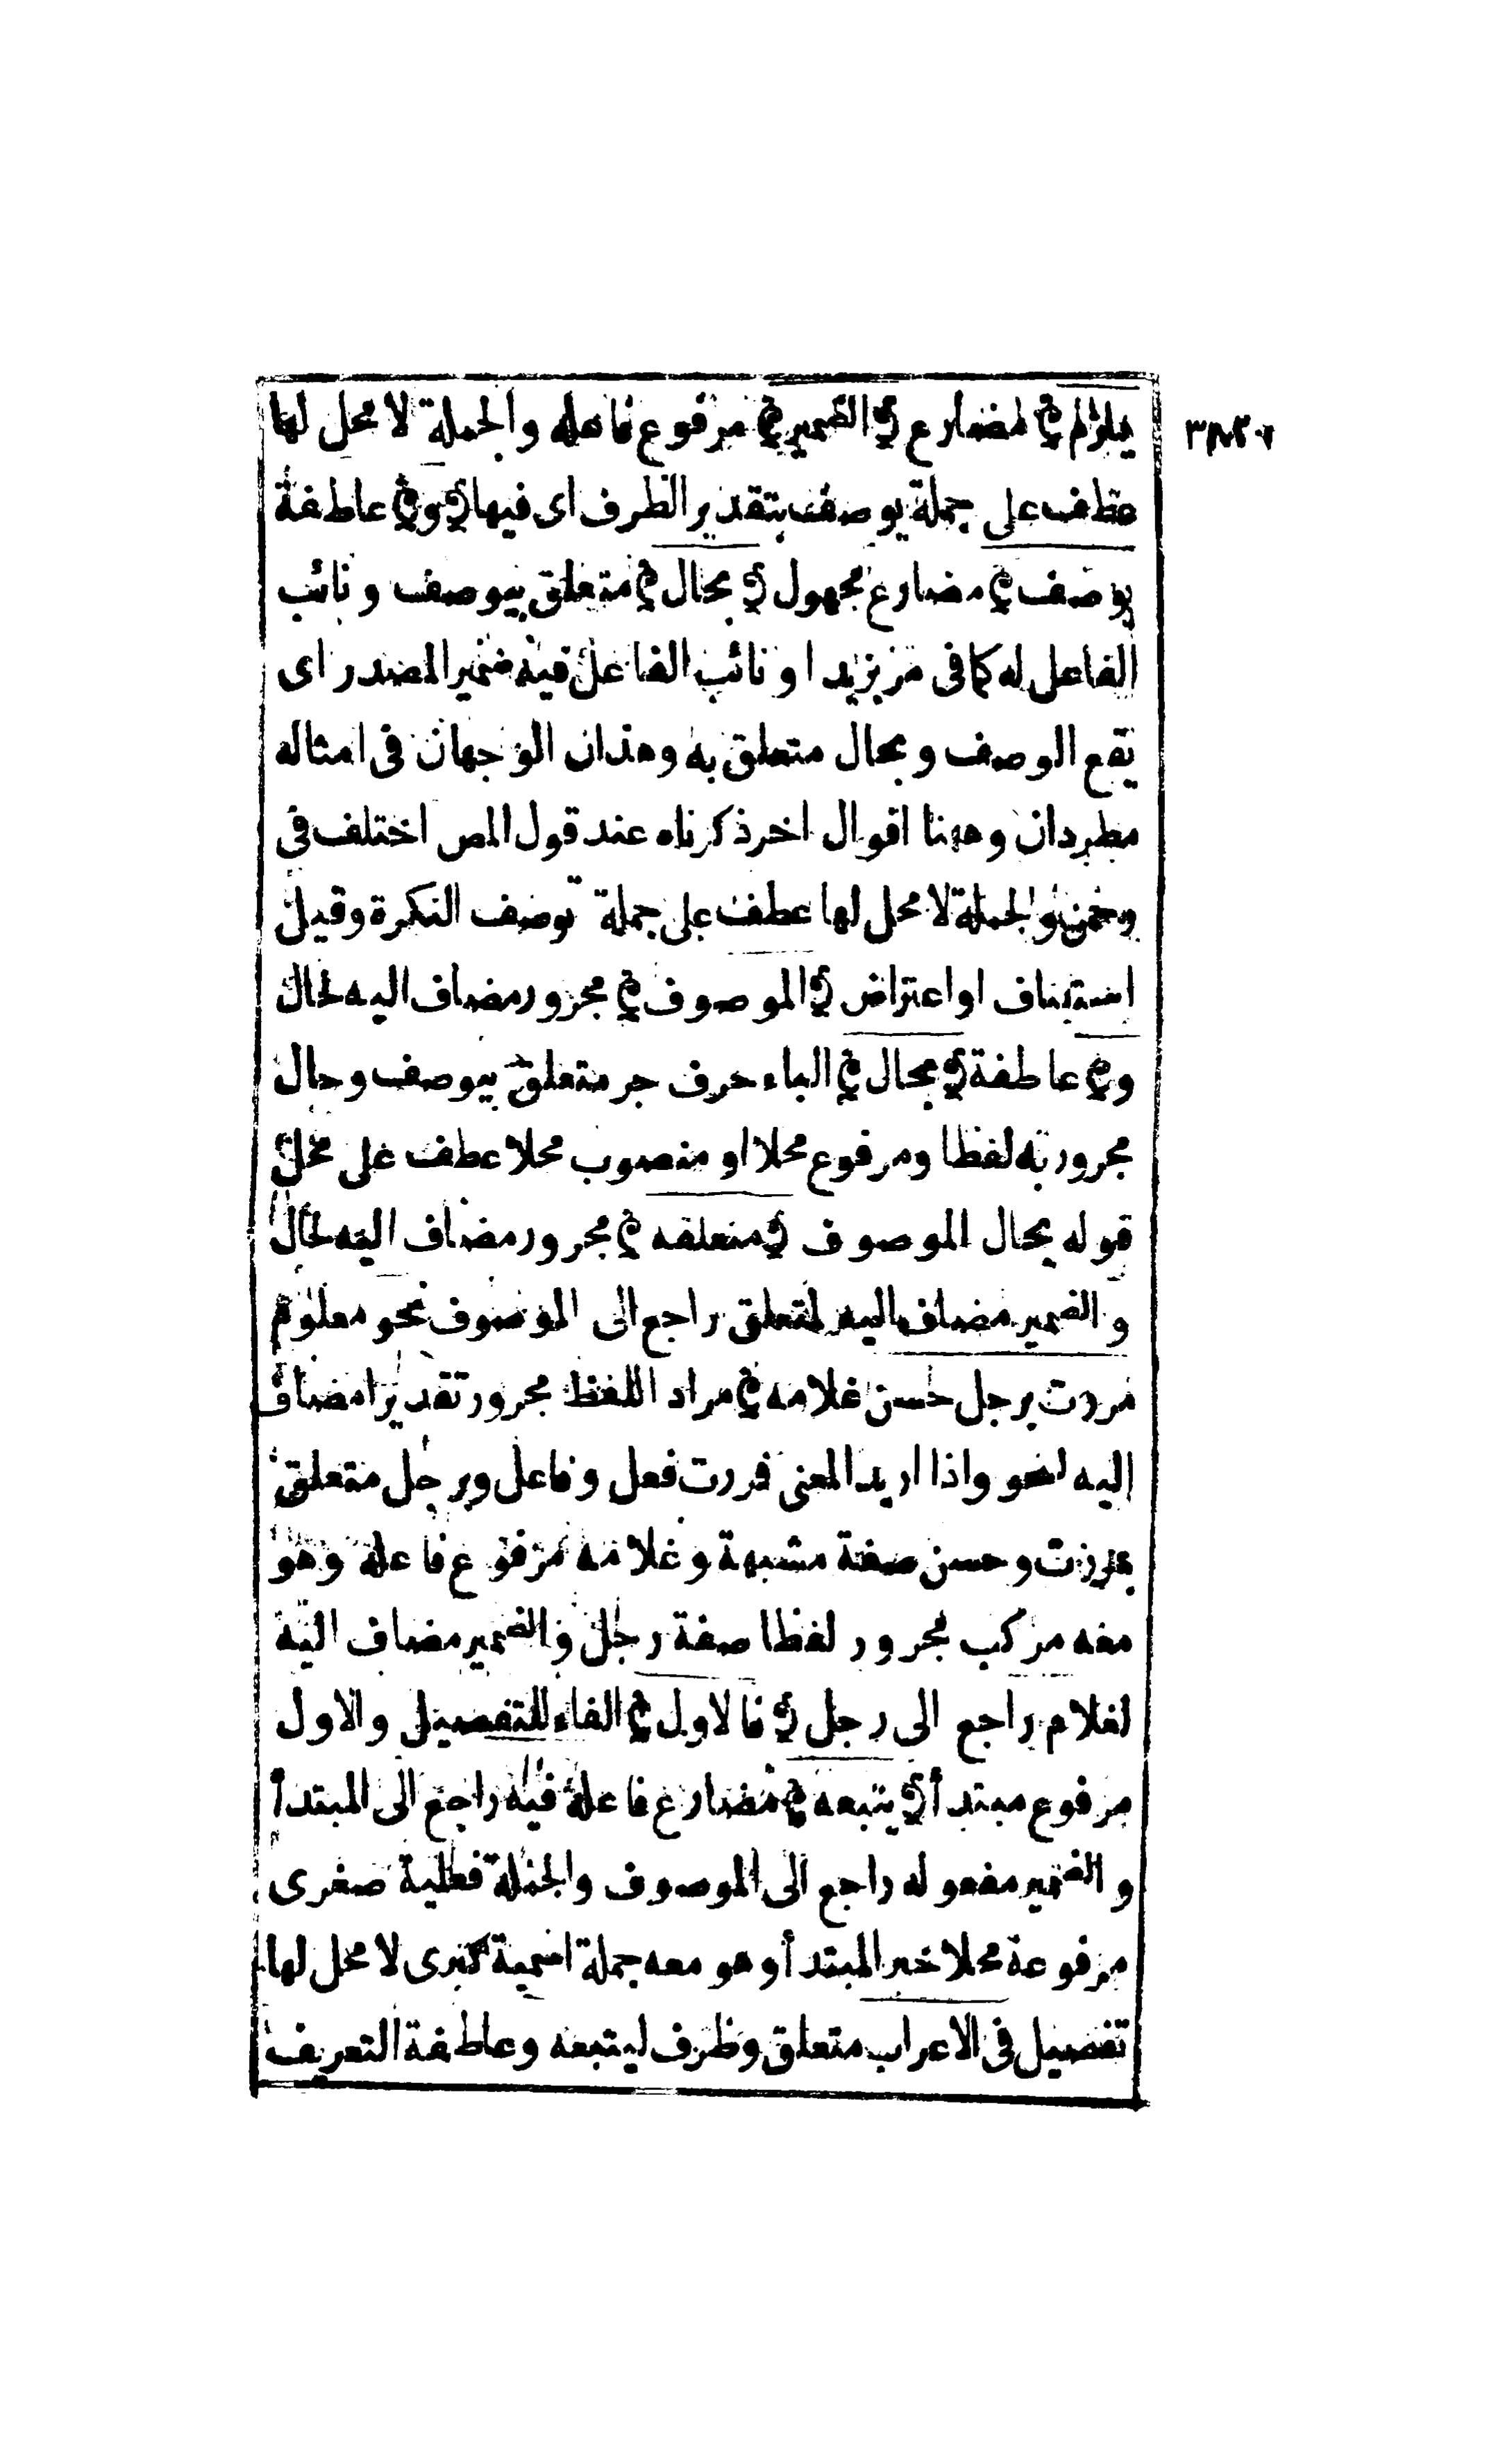 يلزم ﴾ مضارع ﴿ الضمير ﴾ مرفوع فاعله والجملة لا محل لها
عطف على جملة يوصف بتقدير الظرف اى فيها ﴿ و ﴾ عاطفة
يوصف ﴾ مضارع مجهول ﴿ بحال ﴾ متعلق بيوصف و نائب
الفاعل له كما فى مر بزيد او نائب الفاعل فيه ضمير المصدر اى
يقع الوصف و بحال متعلق به وهذان الوجهان فى امثاله
مطردان وههنا اقوال اخر ذكرناه عند قول المص اختلف فى
والجملة لا محل لها عطف على جملة توصف النكرة وقيل
استيناف او اعتراض ﴿ الموصوف ﴾ مجرور مضاف اليه لحال
و ﴾ عاطفة ﴿ بحال ﴾ الباء حرف جر متعلق بيوصف وحال
مجرور به لفظا ومرفوع محلا او منصوب محلا عطف على محل
قوله بحال الموصوف ﴿ متعلقه ﴾ مجرور مضاف اليه لحال
و الضمير مضاف اليه لمتعلق راجع الى الموصوف نحو معلوم
مررت برجل حسن غلامه ﴾ مراد اللفظ مجرور تقديرا مضاف
اليه لنحو واذا اريد المعنى فمررت فعل وفاعل وبرجل متعلق
بمررت وحسن صفة مشبهة وغلامه مرفوع فاعله وهو
معه مركب مجرور لفظا صفة رجل والضمير مضاف اليه
لغلام راجع الى رجل ﴿ فالاول ﴾ الفاء للتفصيل والاول
مرفوع مبتدأ ﴿ يتبعه ﴾ مضارع فاعله فيه راجع الى المبتدأ
و الضمير مفعوله راجع الى الموصوف والجملة فعلية صغرى
مرفوعة محلا خبر المبتدأ وهو معه جملة اسمية كبرى لا محل لها
تفصيل فى الاعراب متعلق وظرف ليتبعه وعاطفة التعريف